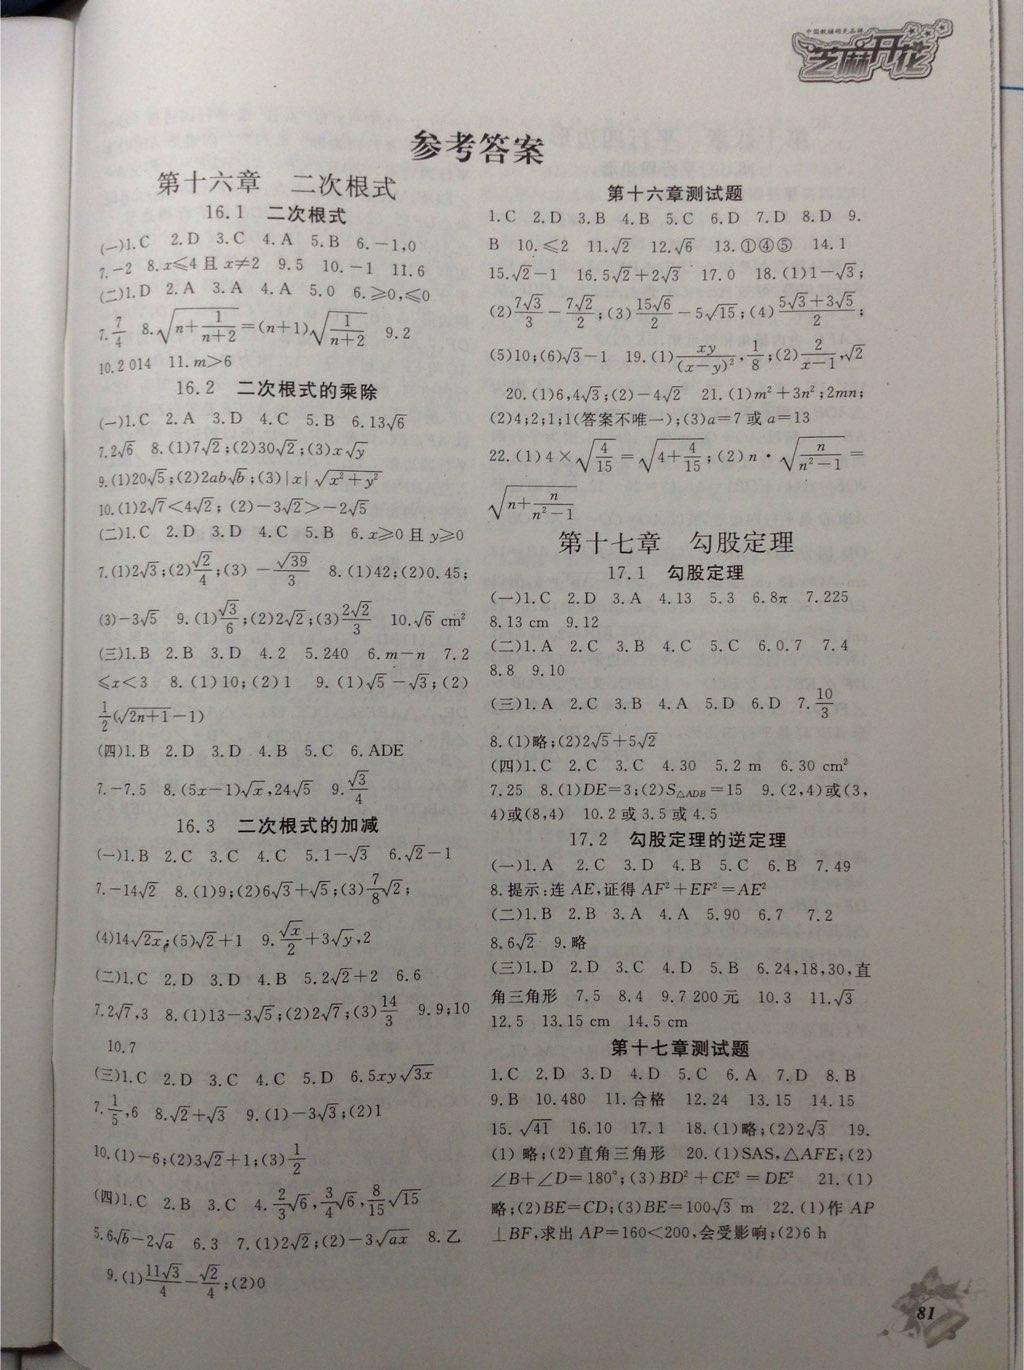 中国教辅领先品牌
芝麻开花
参考答案
第十六章 二次根式
16.1 二次根式
(一)1.C 2.D 3.C 4.A 5.B 6.-1,0
7.-2 8.x≤4且x≠2 9.5 10.-1 11.6
(二)1.D 2.A 3.A 4.A 5.0 6.≥0,≤0
7.7/4 8.√(n+1/(n+2))=(n+1)√(1/(n+2)) 9.2
10.2 014 11.m>6
16.2 二次根式的乘除
(一)1.C 2.A 3.D 4.C 5.B 6.13√6
7.2√6 8.(1)7√2;(2)30√2;(3)x√y
9.(1)20√5;(2)2ab√b;(3)|x|√(x²+y²)
10.(1)2√7<4√2; (2)-3√2>-2√5
(二)1.C 2.D 3.D 4.C 5.B 6.x≥0且y≥0
7.(1)2√3;(2)√2/4;(3)-√39/3 8.(1)42;(2)0.45;
(3)-3√5 9.(1)√3/6;(2)2√2;(3)2√2/3 10.√6 cm²
(三)1.B 2.B 3.D 4.2 5.240 6.m-n 7.2
≤x<3 8.(1)10;(2)1 9.(1)√5-√3;(2)
1/2(√(2n+1)-1)
(四)1.B 2.D 3.D 4.B 5.C 6.ADE
7.-7.5 8.(5x-1)√x,24√5 9.√3/4
16.3 二次根式的加减
(一)1.B 2.C 3.C 4.C 5.1-√3 6.√2-1
7.-14√2 8.(1)9;(2)6√3+√5;(3)7/8√2;
(4)14√2x;(5)√2+1 9.√x/2+3√y,2
(二)1.C 2.D 3.D 4.B 5.2√2+2 6.6
7.2√7,3 8.(1)13-3√5;(2)2√7;(3)14/3 9.9;10
10.7
(三)1.C 2.D 3.C 4.C 5.D 6.5xy√3x
7.1/5,6 8.√2+√3 9.(1)-3√3;(2)1
10.(1)-6;(2)3√2+1;(3)1/2
(四)1.C 2.B 3.C 4.2/3√6,3/4√6,8/15√15
5.6√b-2√a 6.3 7.(1)2√2;(2)-3√ax 8.乙
9.(1)11√3/4-√2/4;(2)0
第十六章测试题
1.C 2.D 3.B 4.B 5.C 6.D 7.D 8.D 9.
B 10.≤2 11.√2 12.√6 13.①④⑤ 14.1
15.√2-1 16.5√2+2√3 17.0 18.(1)1-√3;
(2)7√3/3-7√2/2;(3)15√6/2-5√15;(4)(5√3+3√5)/2;
(5)10;(6)√3-1 19.(1)xy/(x-y)²,1/8;(2)2/(x-1),√2
20.(1)6,4√3;(2)-4√2 21.(1)m²+3n²;2mn;
(2)4;2;1;1(答案不唯一);(3)a=7或a=13
22.(1)4×√(4/15)=√(4+4/15);(2)n·√(n/(n²-1))=
√(n+n/(n²-1))
第十七章 勾股定理
17.1 勾股定理
(一)1.C 2.D 3.A 4.13 5.3 6.8π 7.225
8.13 cm 9.12
(二)1.A 2.C 3.B 4.C 5.C 6.0.7 7.4
8.8 9.10
(三)1.A 2.C 3.B 4.A 5.D 6.D 7.10/3
8.(1)略;(2)2√5+5√2
(四)1.C 2.C 3.C 4.30 5.2 m 6.30 cm²
7.25 8.(1)DE=3;(2)S△ADB=15 9.(2,4)或(3,
4)或(8,4) 10.2或3.5或4.5
17.2 勾股定理的逆定理
(一)1.A 2.C 3.D 4.B 5.C 6.B 7.49
8.提示:连AE,证得AF²+EF²=AE²
(二)1.B 2.B 3.A 4.A 5.90 6.7 7.2
8.6√2 9.略
(三)1.D 2.D 3.C 4.D 5.B 6.24,18,30,直
角三角形 7.5 8.4 9.7 200元 10.3 11.√3
12.5 13.15 cm 14.5 cm
第十七章测试题
1.C 2.D 3.D 4.D 5.C 6.A 7.D 8.B
9.B 10.480 11.合格 12.24 13.15 14.15
15.√41 16.10 17.1 18.(1)略;(2)2√3 19.
(1)略;(2)直角三角形 20.(1)SAS,△AFE;(2)
∠B+∠D=180°;(3)BD²+CE²=DE² 21.(1)
略;(2)BE=CD;(3)BE=100√3 m 22.(1)作AP
⊥BF,求出AP=160<200,会受影响;(2)6 h
81